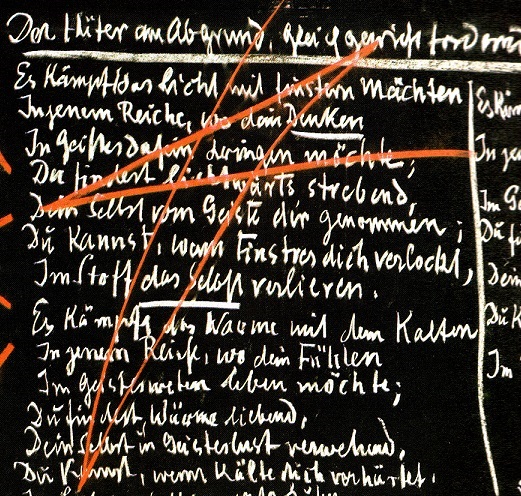 Der Hüter am Abgrund, gleichgewicht fordernd
Es kämpft das Licht mit finstern Mächten
In jenem Reiche, wo dein Denken
In Geistesdasein dringen möchte;
Du findest lichtwärts strebend,
Dein Selbst vom Geiste dir genommen;
Du kannst, wenn Finstres dich verlockt,
Im Stoff das Selbst verlieren.
Es kämpft das Warme mit dem Kalten
In jenem Reiche, wo dein Fühlen
Im Geistesweben leben möchte;
Du findest, Wärme liebend,
Dein Selbst in Geisteslust verwehend,
Du kannst, wenn Kälte dich verhärtet,
Es
In
Im
Du
Dein
Du K
Im